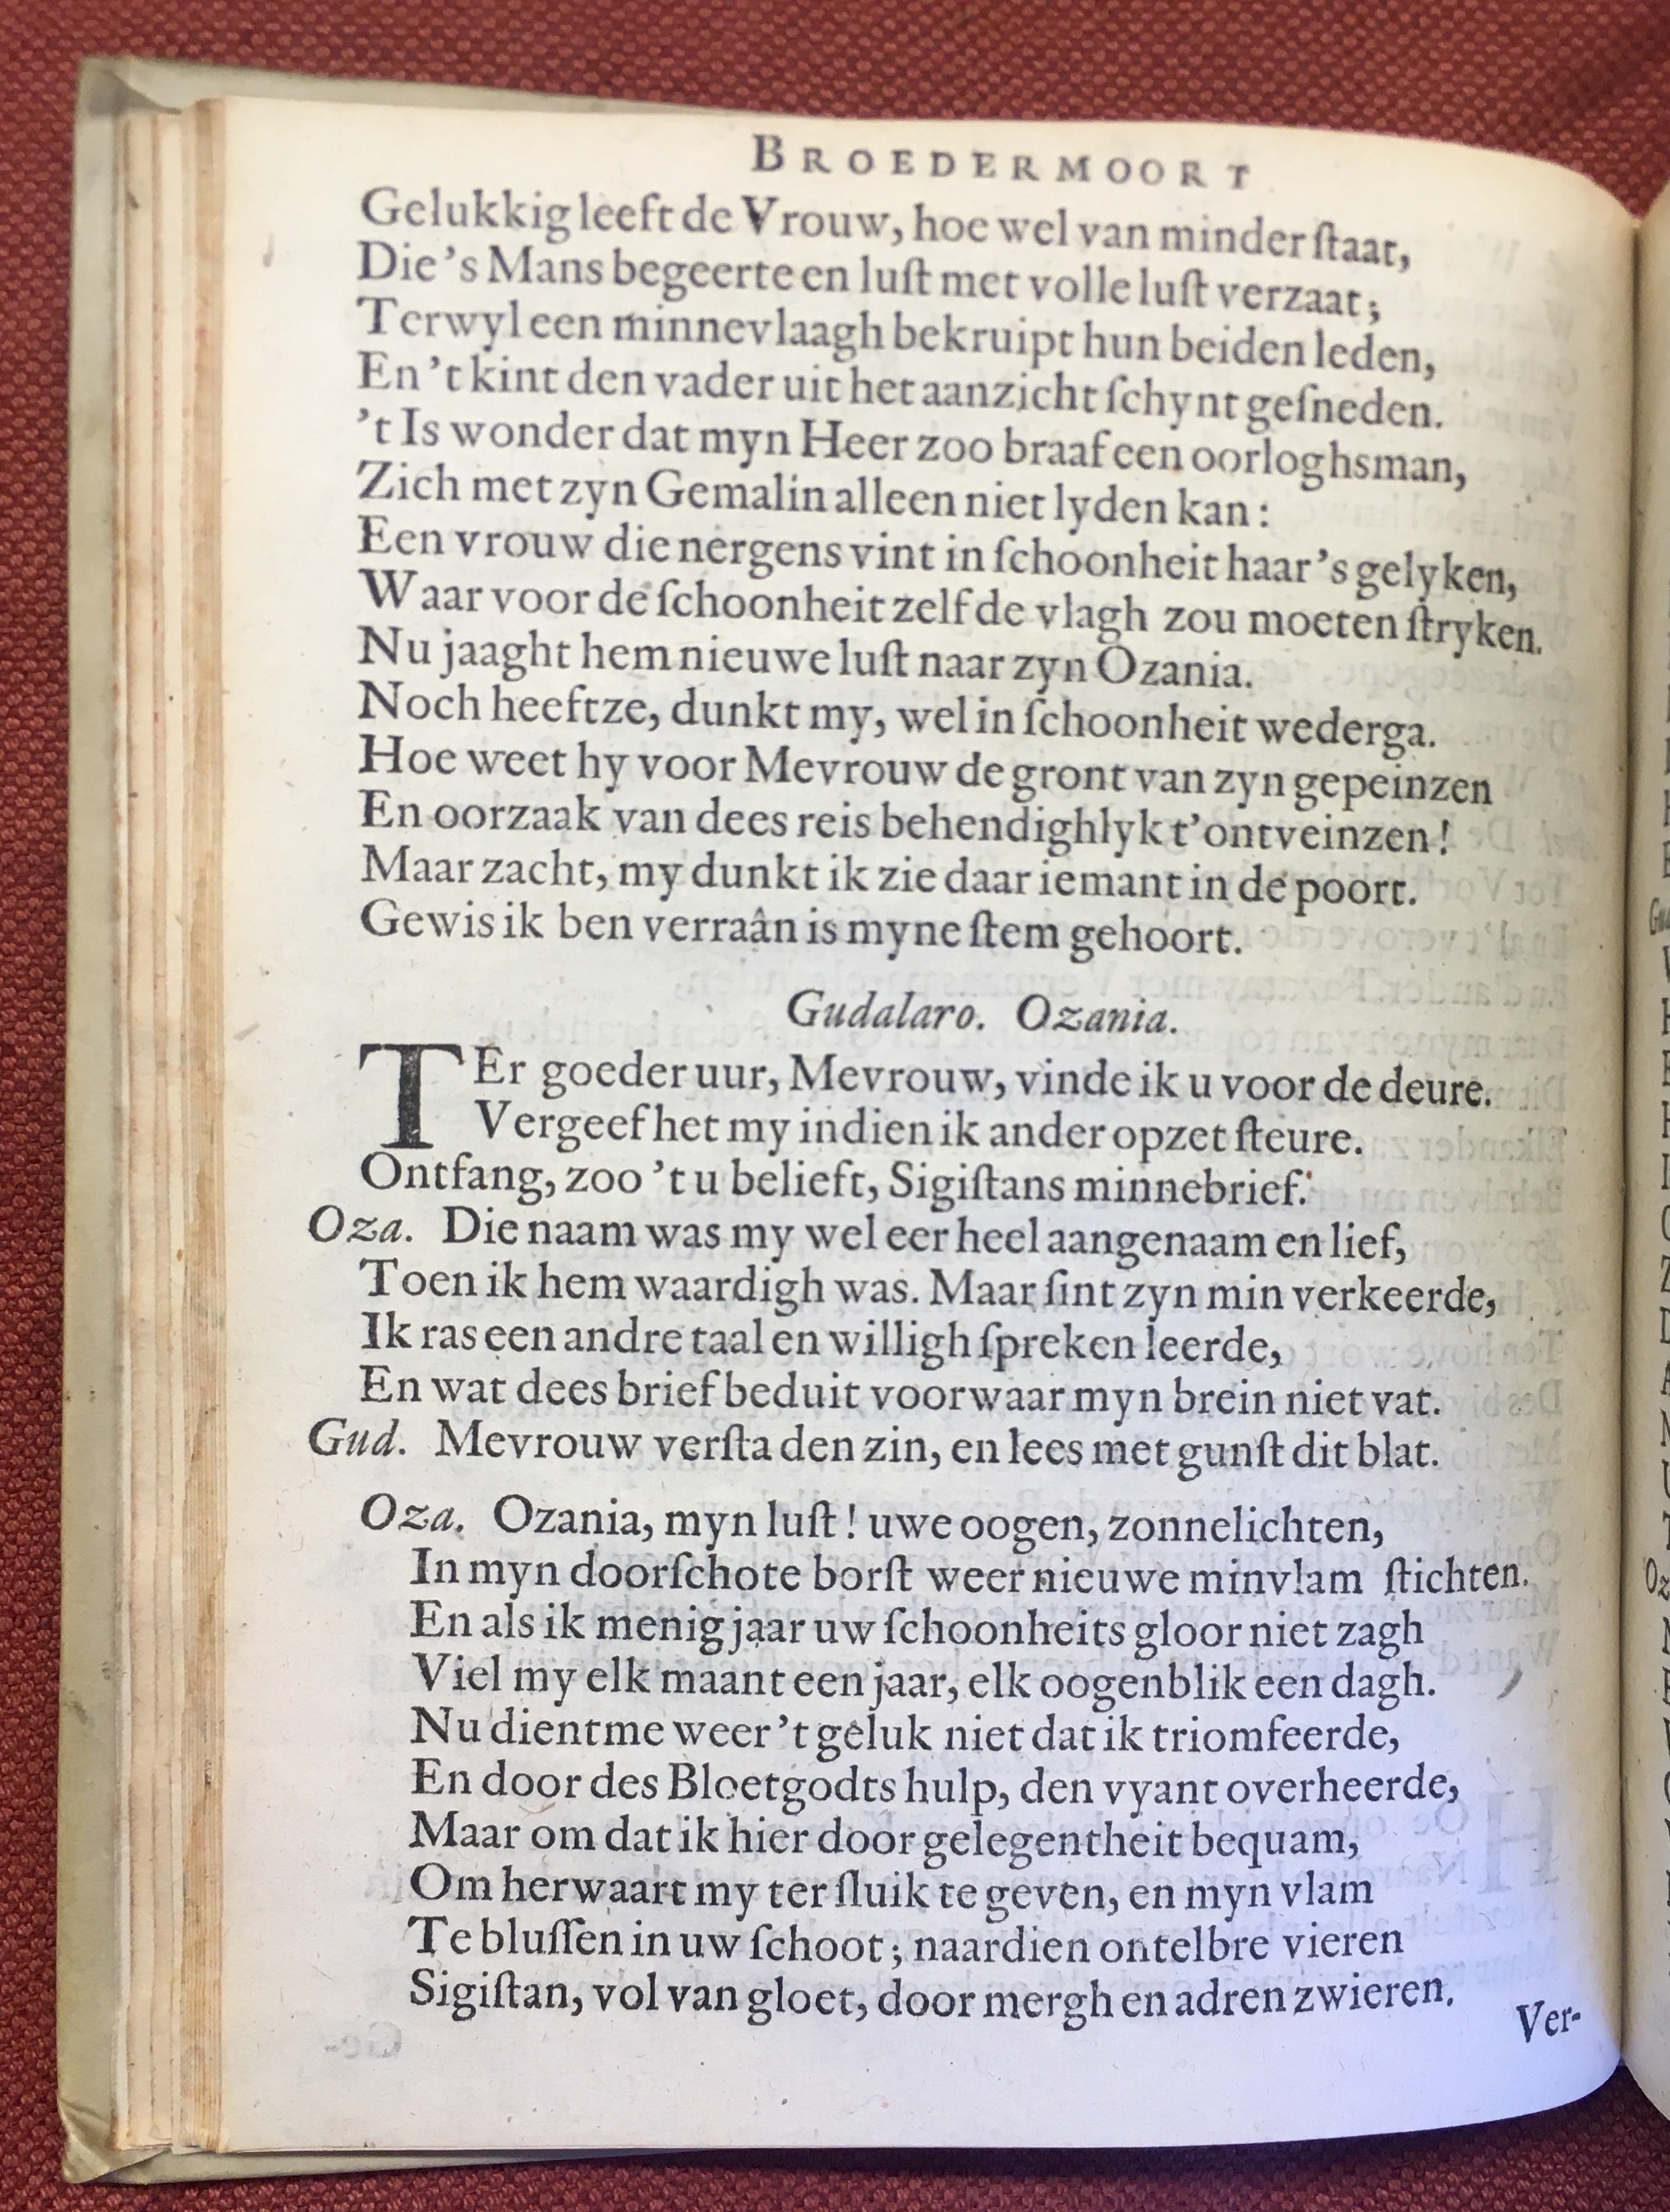 BROEDERMOORT
Gelukkig leeft de Vrouw, hoe wel van minder ſtaat,
Die 's Mans begeerte en luſt met volle luſt verzaat;
Terwyl een minnevlaagh bekruipt hun beiden leden,
En 't kint den vader uit het aanzicht ſchynt geſneden.
't Is wonder dat myn Heer zoo braaf een oorloghsman,
Zich met zyn Gemalin alleen niet lyden kan:
Een vrouw die nergens vint in ſchoonheit haar 's gelyken,
Waar voor de ſchoonheit zelf de vlagh zou moeten ſtryken.
Nu jaaght hem nieuwe luſt naar zyn Ozania.
Noch heeftze, dunkt my, wel in ſchoonheit wederga.
Hoe weet hy voor Mevrouw de gront van zyn gepeinzen
En oorzaak van dees reis behendighlyk t'ontveinzen!
Maar zacht, my dunkt ik zie daar iemant in de poort.
Gewis ik ben verraân is myne ſtem gehoort.
Gudalaro. Ozania.
TEr goeder uur, Mevrouw, vinde ik u voor de deure.
Vergeef het my indien ik ander opzet ſteure.
Ontfang, zoo 't u belieft, Sigiſtans minnebrief.
Oza. Die naam was my wel eer heel aangenaam en lief,
Toen ik hem waardigh was. Maar ſint zyn min verkeerde,
Ik ras een andre taal en willigh ſpreken leerde,
En wat dees brief beduit voorwaar myn brein niet vat.
Gud. Mevrouw verſta den zin, en lees met gunſt dit blat.
Oza. Ozania, myn luſt! uwe oogen, zonnelichten,
In myn doorſchote borſt weer nieuwe minvlam ſtichten.
En als ik menig jaar uw ſchoonheits gloor niet zagh
Viel my elk maant een jaar, elk oogenblik een dagh.
Nu dientme weer 't geluk niet dat ik triomfeerde,
En door des Bloetgodts hulp, den vyant overheerde,
Maar om dat ik hier door gelegentheit bequam,
Om herwaart my ter ſluik te geven, en myn vlam
Te bluſſen in uw ſchoot; naardien ontelbre vieren
Sigiſtan, vol van gloet, door mergh en adren zwieren.
Ver-